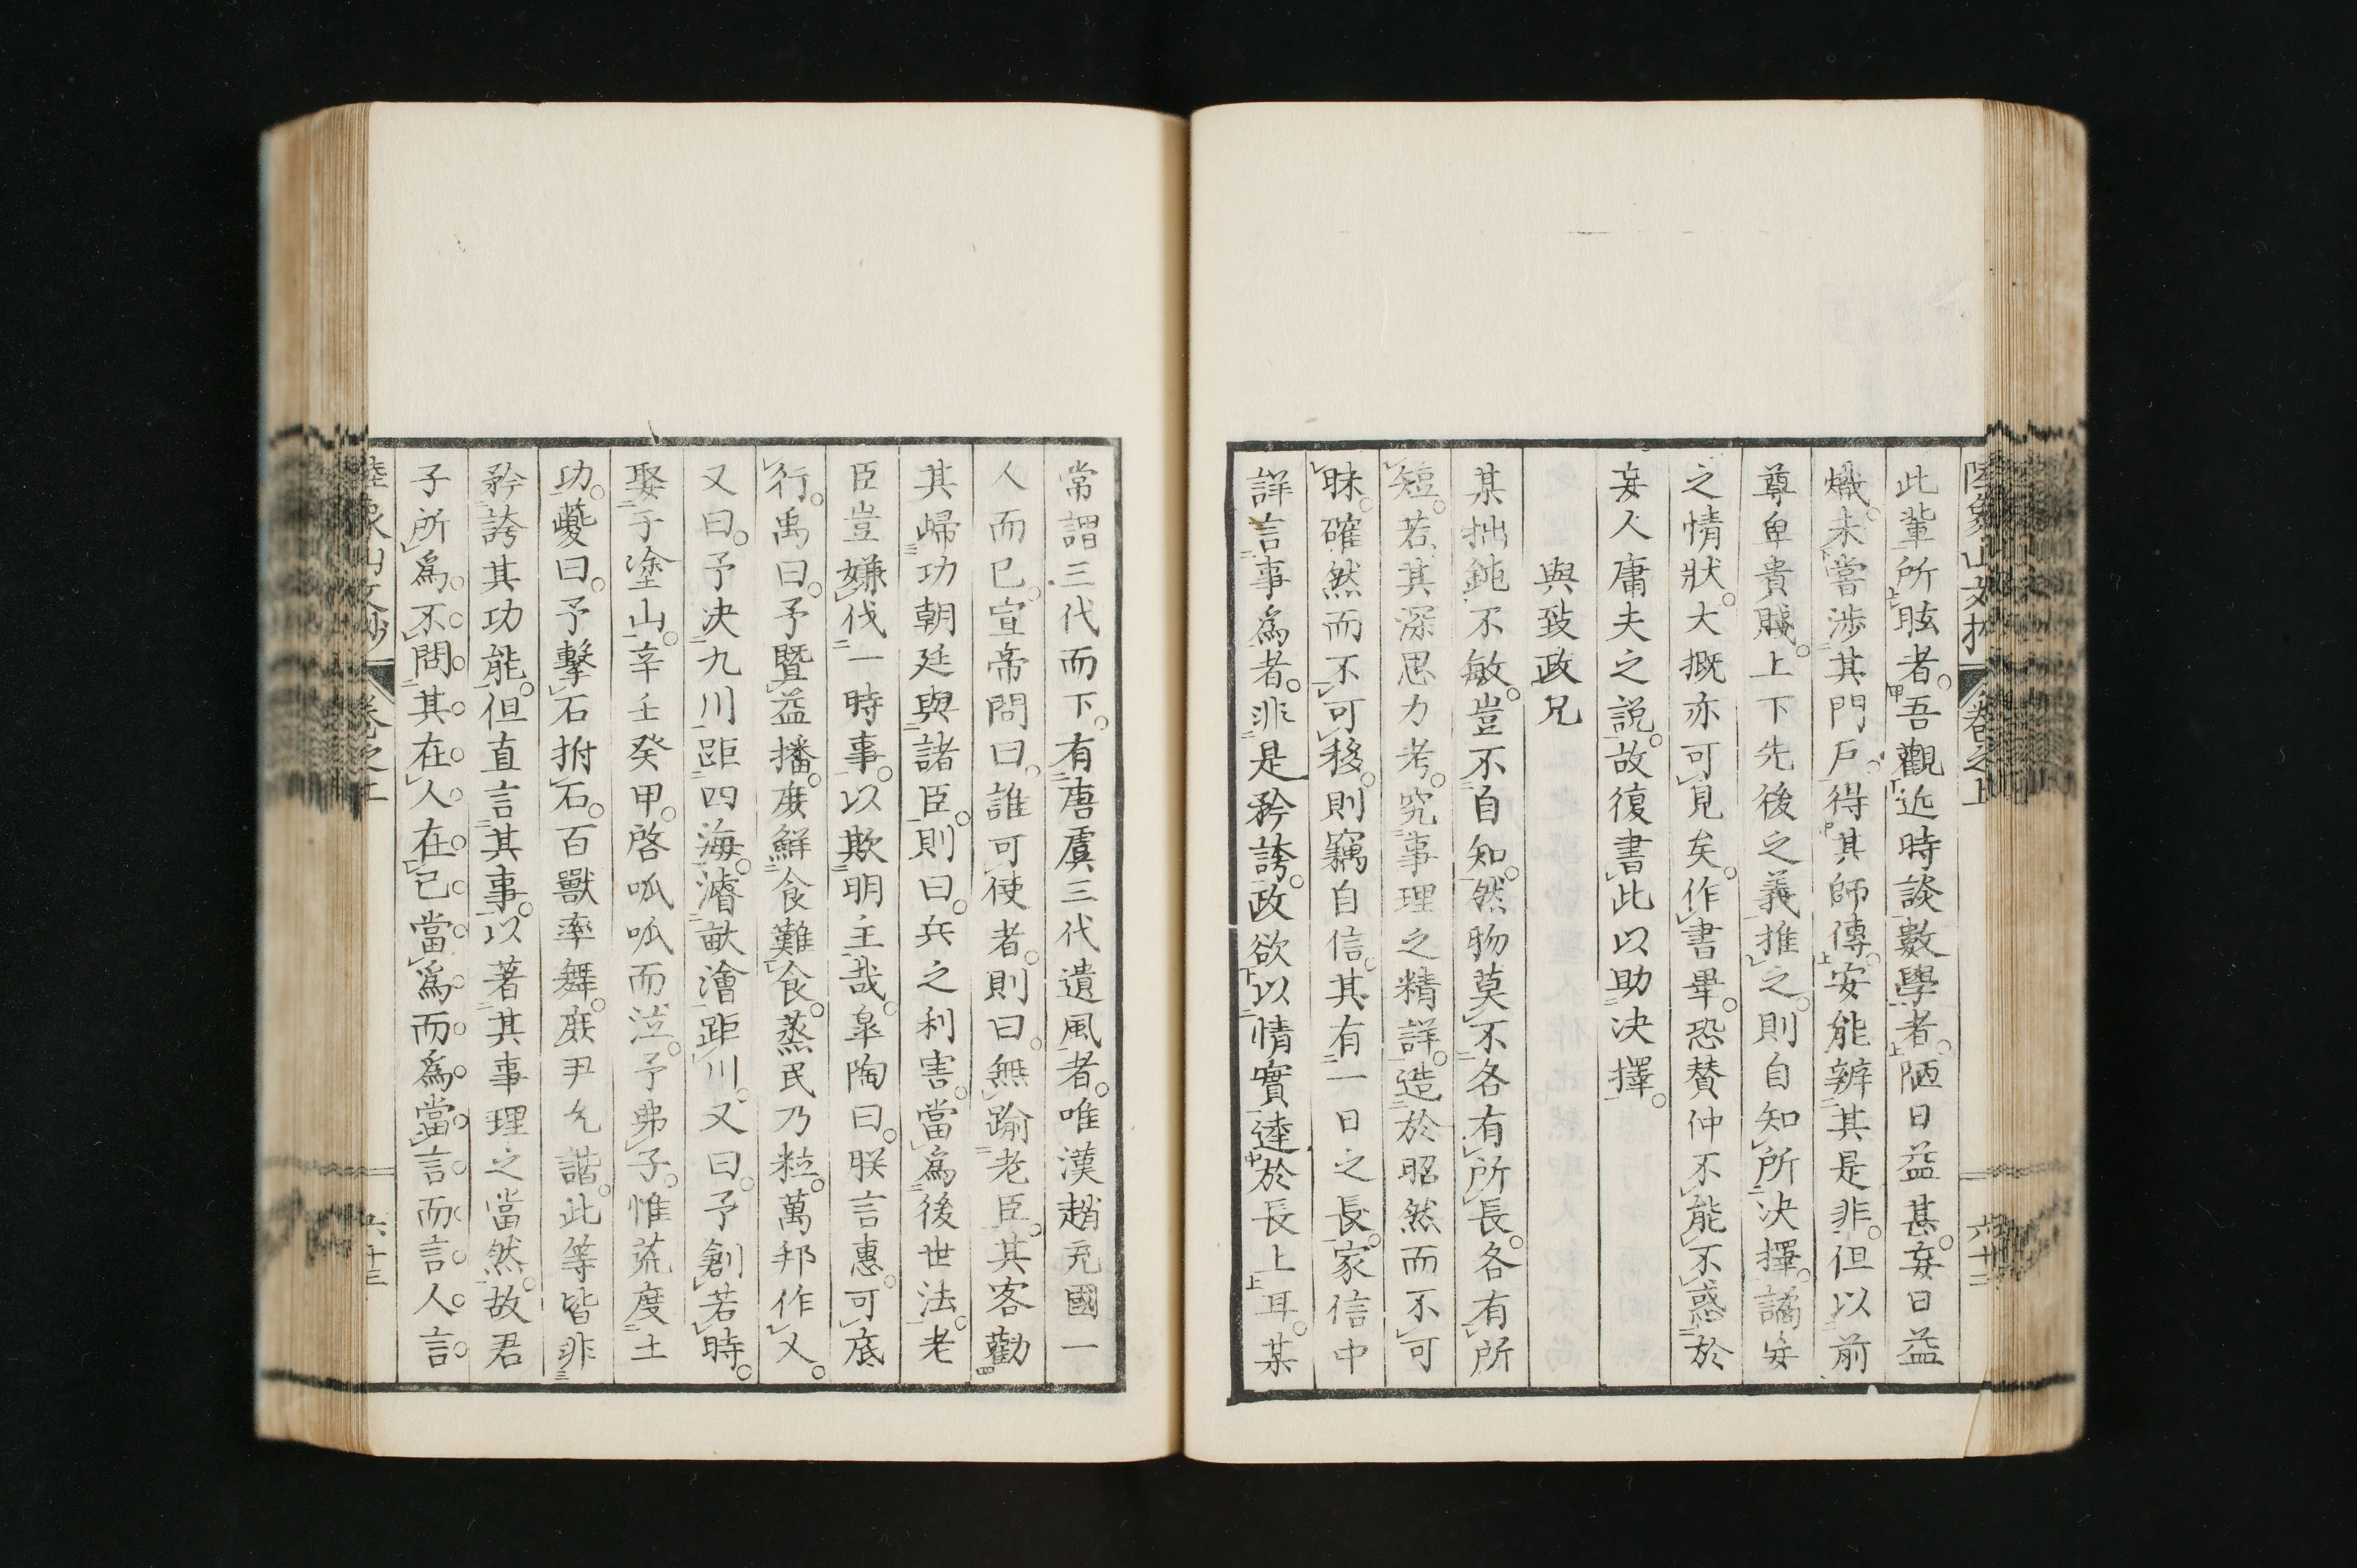 陸象山文抄 卷之上 六十二
此輩所眩者。吾觀近時談數學者。陋日益甚。妄日益
熾。未嘗涉其門戶。得其師傳。安能辨其是非。但以前
尊卑貴賤。上下先後之義推之。則自知所決擇。譎妄
之情狀。大概亦可見矣。作書畢。恐賛仲不能不惑於
妄人庸夫之說。故復書此以助決擇。
與致政兄
某拙鈍不敏。豈不自知。然物莫不各有所長。各有所
短。若其深思力考。究事理之精詳。造於昭然而不可
昧。確然而不可移。則竊自信。其有一日之長。家信中
詳言事為者。非是矜誇。政欲以情實達於長上耳。某
常謂三代而下。有唐虞三代遺風者。唯漢趙充國一
人而已。宣帝問曰。誰可使者。則曰。無踰老臣。其客勸
其歸功朝廷與諸臣。則曰。兵之利害。當為後世法。老
臣豈嫌伐一時事。以欺明主哉。皐陶曰。朕言惠。可底
行。禹曰。予曁益播。庶鮮食難食。蒸民乃粒。萬邦作乂。
又曰。予決九川距四海。濬畎澮距川。又曰。予創若時。
娶于塗山。辛壬癸甲。啓呱呱而泣。予弗子。惟荒度土
功。夔曰。予擊石拊石。百獸率舞。庶尹允諧。此等皆非
矜誇其功能。但直言其事。以著其事理之當然。故君
子所為。不問其在人在己。當為而為。當言而言。人言
陸象山文抄 卷之上 六十三